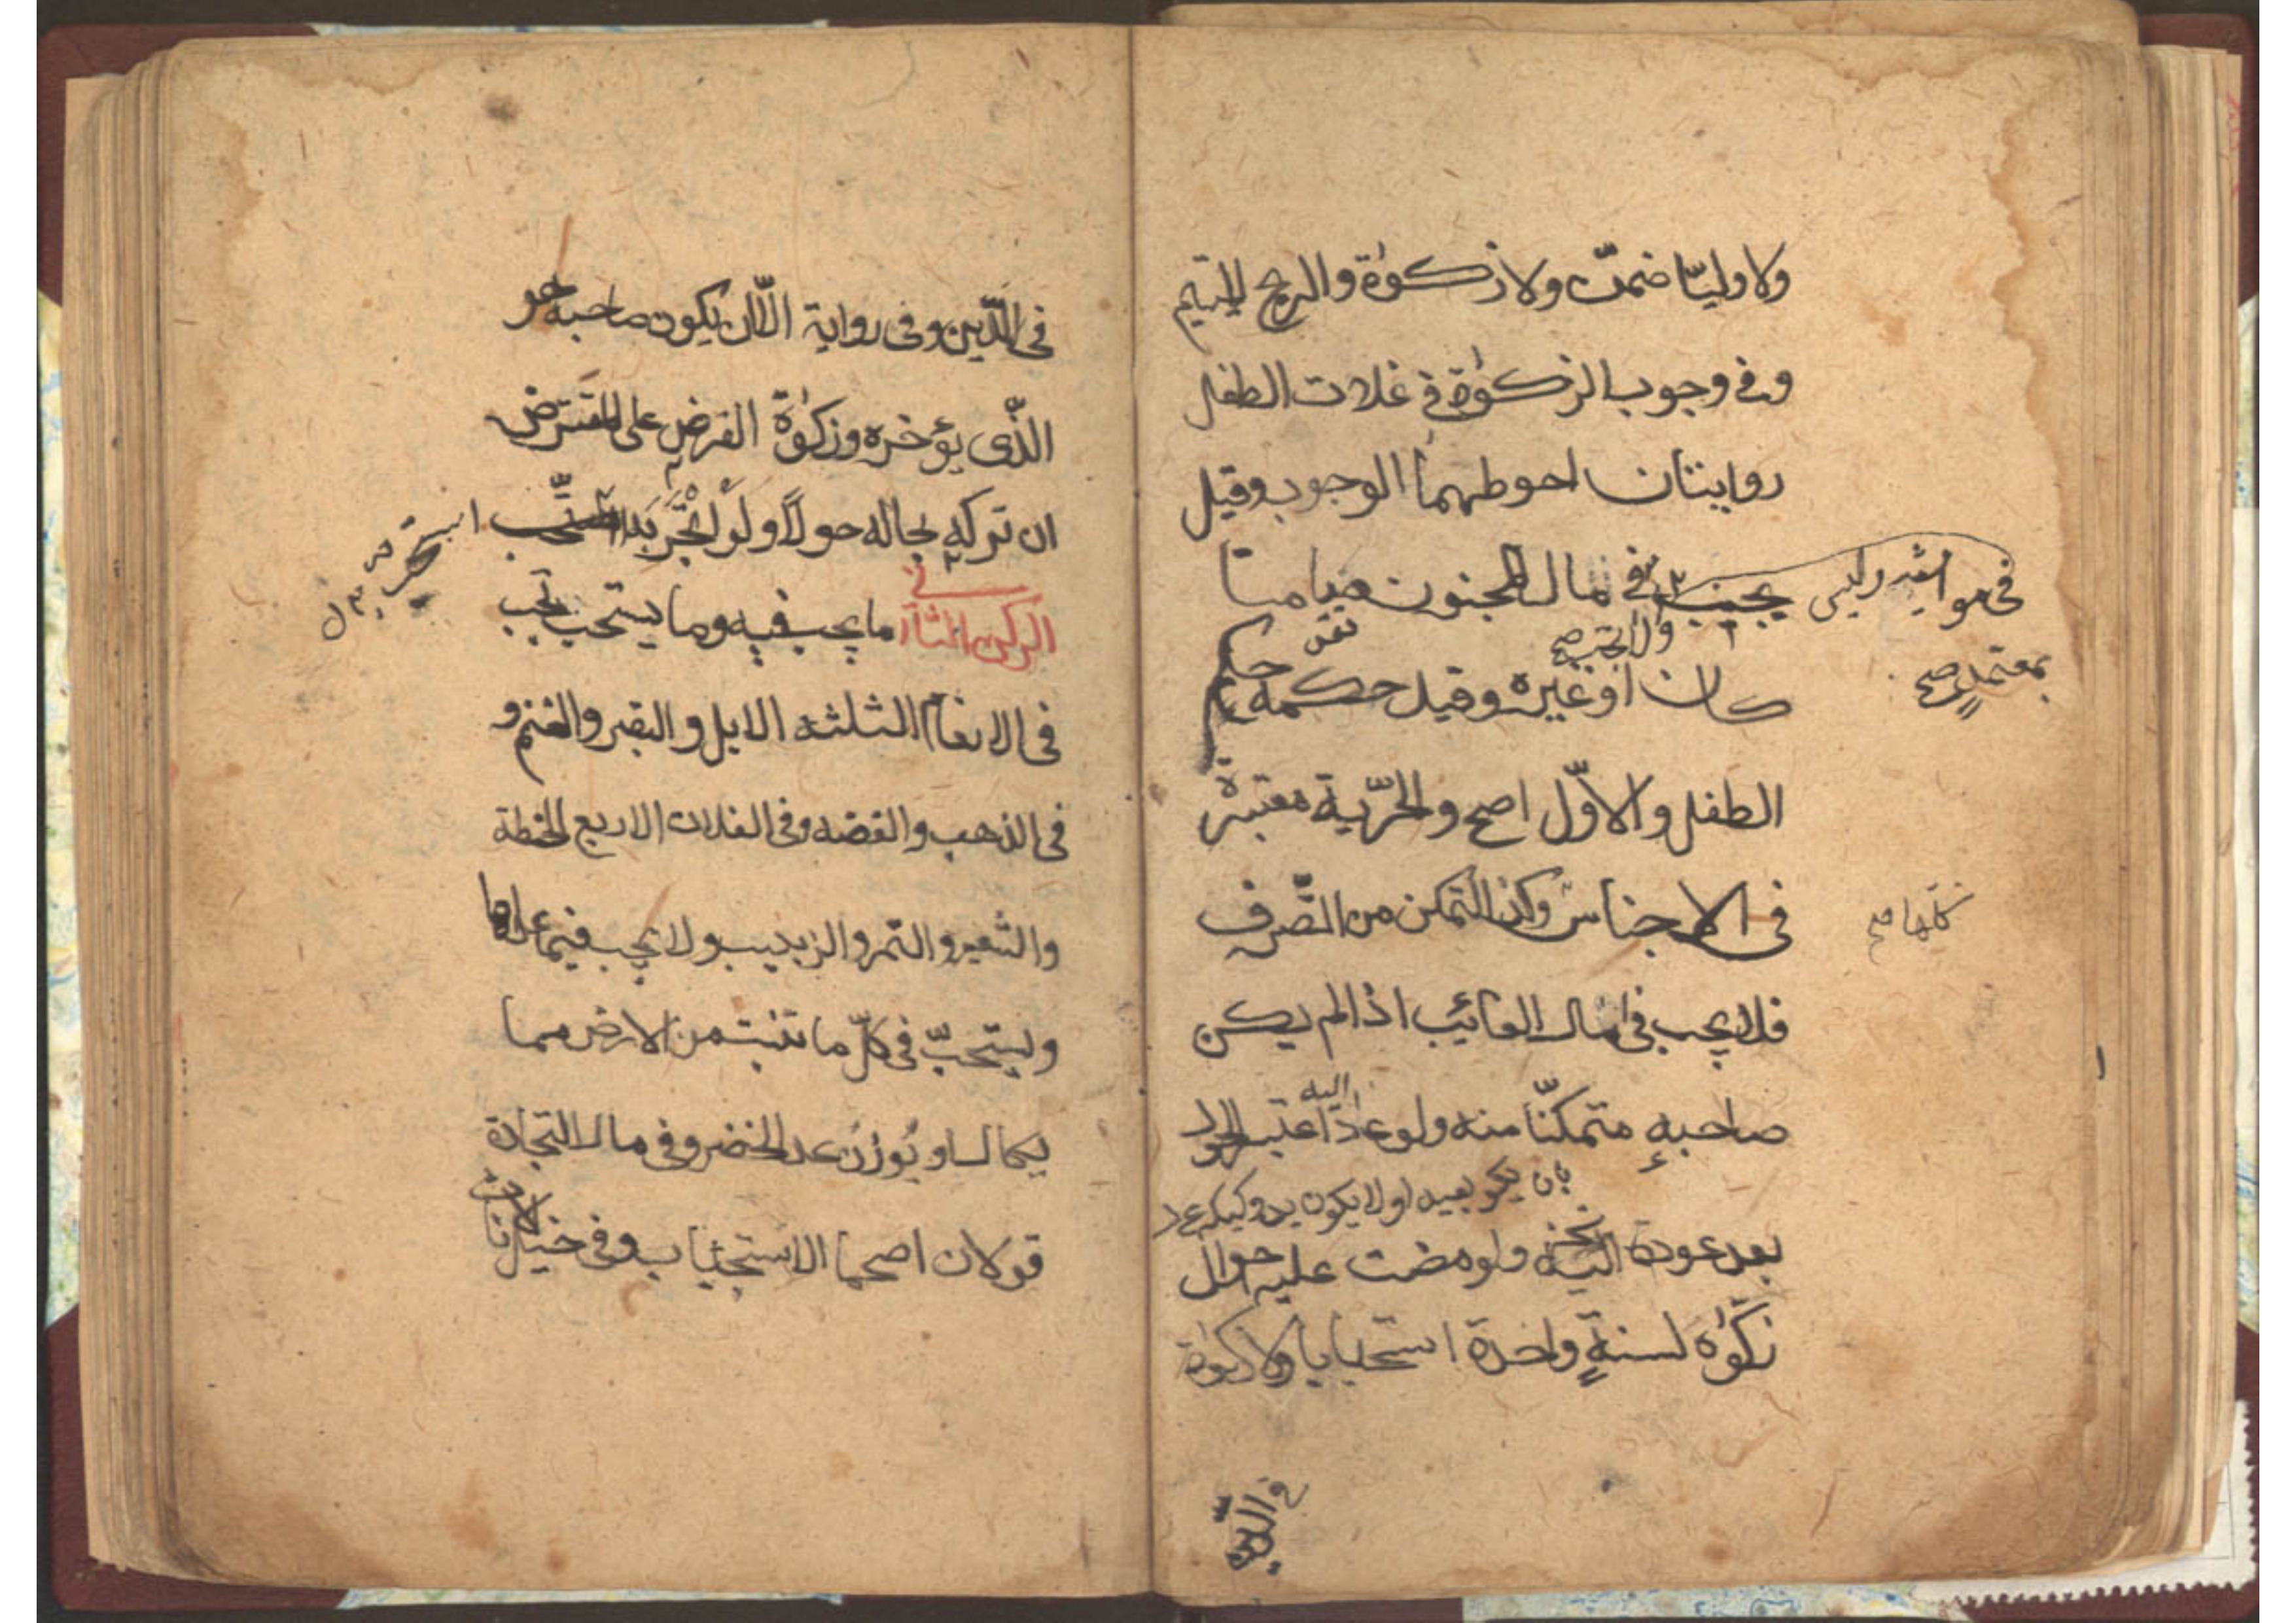 ولا وليّا ضمن ولا زكوة والربح لليتيم
وفي وجوب الزكوة في غلات الطفل
روايتان احوطهما الوجوب وقيل
يجب في مال المجنون صامتا
في مواشيه وليس
بمعتمد صح
كان او غيره وقيل حكمه حكم
الطفل والاوّل اصح والحرّية معتبرة
في الاجناس وكذا التمكن من التصّرف
كلها صح
فلا يجب في مال الغائب اذا لم يكن
صاحبه متمكّنا منه ولو عاد اعتبر الحول
اليه
بعد عوده اليه ولو مضت عليه احوال
زكّوه لسنةٍ واحدة استحبابا ولا زكوة
في الدين
في الدّين وفي رواية الّا ان يكون صاحبه هو
الذّى يؤخره وزكوة القرض على المقترض
ان تركه بحاله حولاً ولو اتّجر به استحبّ
الركن الثانى ما يجب فيه وما يستحب تجب
في الانعام الثلثه الابل و البقر والغنم و
في الذهب والفضه وفي الغلات الاربع الحنطة
والشعير والتمر والزبيب ولا يجب فيما عداها
ويستحبّ في كلّ ما تنبت من الارض مما
يكال او يوزن عدا الخضر وفي مال التجارة
قولان اصحها الاستحباب وفي خيل الاناث